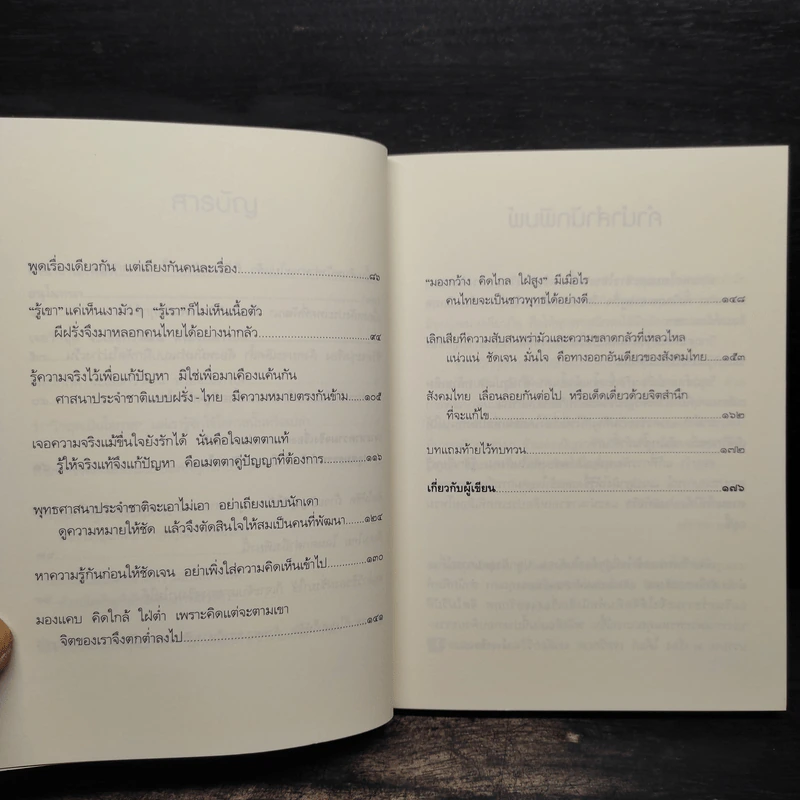 พูดเรื่องเดียวกัน แต่เถียงกันคนละเรื่อง...............................๘๖
“รู้เขา” แค่เห็นเงามัวๆ “รู้เรา” ก็ไม่เห็นเนื้อตัว
ผีฝรั่งจึงมาหลอกคนไทยได้อย่างน่ากลัว...........................๙๔
รู้ความจริงไว้เพื่อแก้ปัญหา มิใช่เพื่อมาเคืองแค้นกัน
ศาสนาประจำชาติแบบฝรั่ง-ไทย มีความหมายตรงกันข้าม....๑๐๕
เจอความจริงแม้ขื่นใจยังรักได้ นั่นคือใจเมตตาแท้
รู้ให้จริงแท้จึงแก้ปัญหา คือเมตตาคู่ปัญญาที่ต้องการ.........๑๑๖
พุทธศาสนาประจำชาติจะเอาไม่เอา อย่าเถียงแบบนักเดา
ดูความหมายให้ชัด แล้วจึงตัดสินใจให้สมเป็นคนที่พัฒนา....๑๒๔
หาความรู้กันก่อนให้ชัดเจน อย่าเพิ่งใส่ความคิดเห็นเข้าไป.......๑๓๐
มองแคบ คิดใกล้ ใฝ่ต่ำ เพราะคิดแต่จะตามเขา
จิตของเราจึงตกต่ำลงไป.......................................๑๔๑
“มองกว้าง คิดไกล ใฝ่สูง” มีเมื่อไร
คนไทยจะเป็นชาวพุทธได้อย่างดี...........................๑๔๘
เลิกเสียทีความสับสนพร่ามัวและความขลาดกลัวที่เหลวไหล
แน่วแน่ ชัดเจน มั่นใจ คือทางออกอันเดียวของสังคมไทย....๑๕๓
สังคมไทย เลื่อนลอยกันต่อไป หรือเด็ดเดี่ยวด้วยจิตสำนึก
ที่จะแก้ไข...................................................๑๖๒
บทแถมท้ายไว้ทบทวน...........................................๑๗๒
เกี่ยวกับผู้เขียน................................................๑๗๖